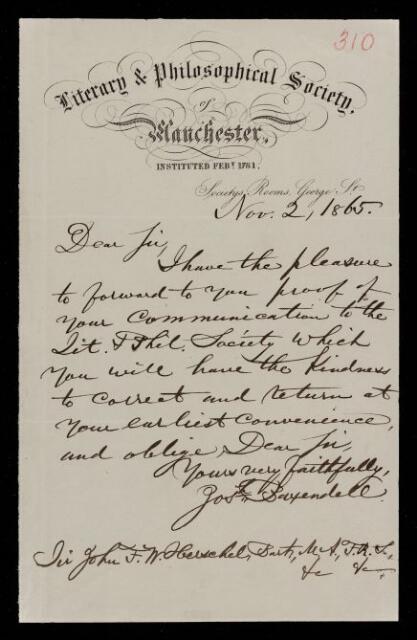 310
Literary & Philosophical Society,
of
Manchester,
INSTITUTED FEBY. 1781.
Society's Rooms, George St
Nov. 2, 1865.
Dear Sir,
I have the pleasure
to forward to you proof of
your communication to the
Lit. & Phil. Society which
you will have the kindness
to correct and return at
your earliest convenience,
and oblige, Dear Sir,
Yours very faithfully,
Josh. Baxendell.
Sir John F. W. Herschel, Bart., M.A., F.R.S.,
&c &c.